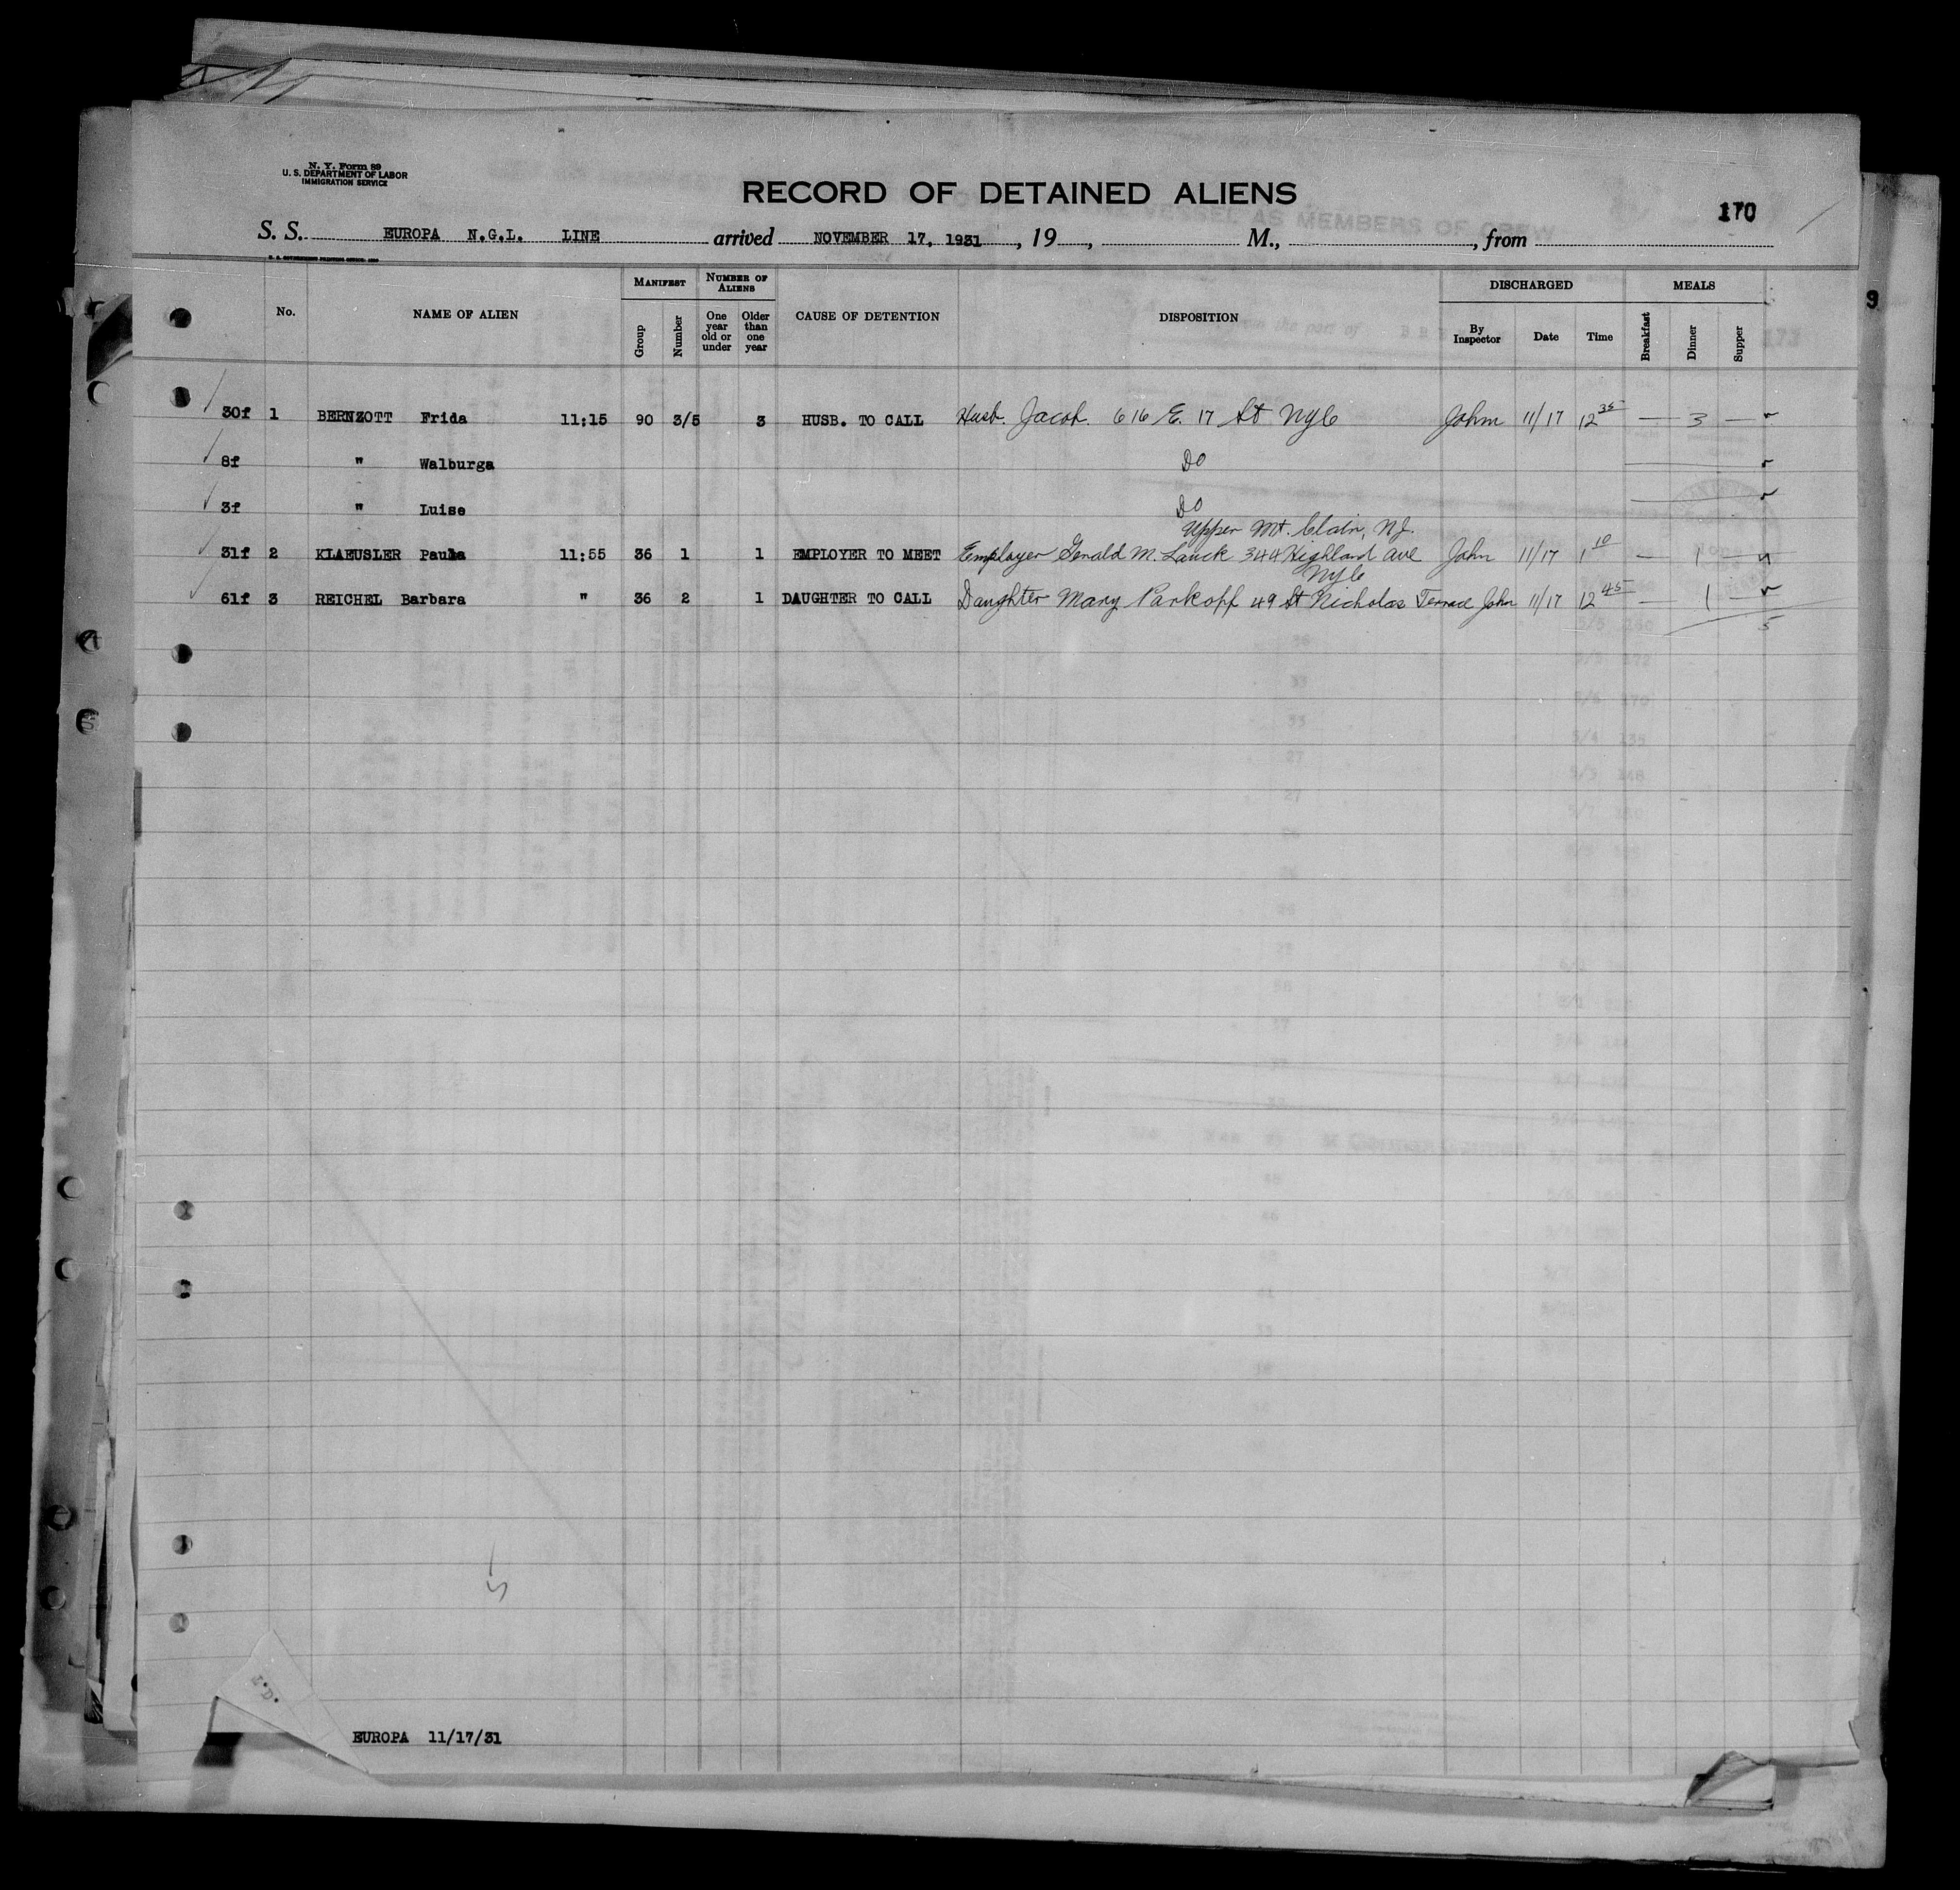 N. Y. Form 89
U. S. DEPARTMENT OF LABOR
IMMIGRATION SERVICE
RECORD OF DETAINED ALIENS
170
S. S. EUROPA N.G.L. LINE arrived NOVEMBER 17, 1931, 19 , M., , from
No. NAME OF ALIEN MANIFEST Group Number NUMBER OF ALIENS One year old or under Older than one year CAUSE OF DETENTION DISPOSITION DISCHARGED By Inspector Date Time MEALS Breakfast Dinner Supper
30f 1 BERNZOTT Frida 11:15 90 3/5 3 HUSB. TO CALL Husb. Jacob. 616 E. 17 St NyC John 11/17 12 35 — 3 —
8f " Walburga Do
3f " Luise Do
Upper Mt. Clair, NJ.
31f 2 KLAEUSLER Paula 11:55 36 1 1 EMPLOYER TO MEET Employer Gerald M. Lauck 344 Highland Ave John 11/17 1 10 — 1 —
NyC
61f 3 REICHEL Barbara " 36 2 1 DAUGHTER TO CALL Daughter Mary Parkoff 49 St Nicholas Terrace John 11/17 12 45 — 1 —
5
5
I.D.
EUROPA 11/17/31